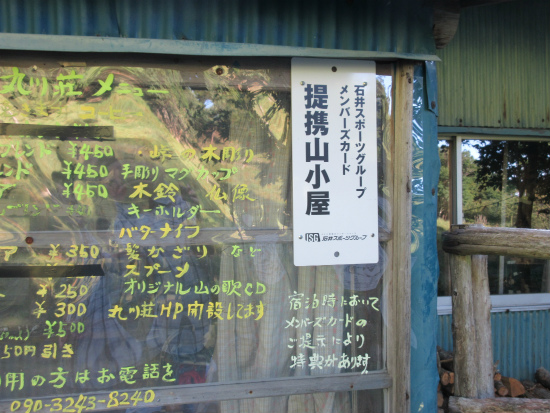 丸川荘 メニュー
ブレンド ¥450
ンド ¥450
¥450
¥350
¥250
¥300
¥500
50円引き
用の方はお電話を
090-3243-8240
峠の木彫り
手彫りマグカップ
木鈴 仏像
キーホルダー
バターナイフ
髪かざり など
スプーン
オリジナル山の歌CD
丸川荘HP開設してます
石井スポーツグループ
メンバーズカード
提携山小屋
ISG 石井スポーツグループ
宿泊時において
メンバーズカードの
ご提示により
特典があります